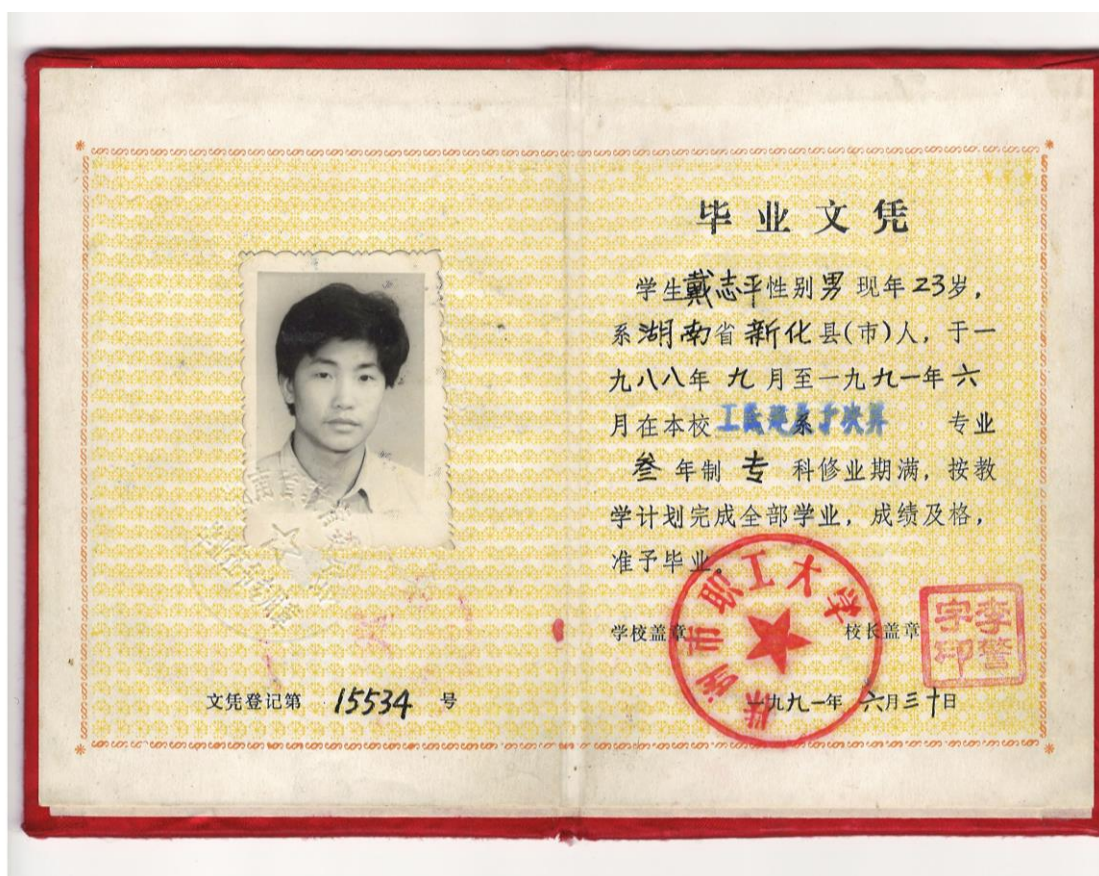 毕业文凭
学生戴志平性别男现年23岁，
系湖南省新化县(市)人，于一
九八八年九月至一九九一年六
月在本校 专业
叁年制专科修业期满，按教
学计划完成全部学业，成绩及格，
准予毕业。
学校盖章 校长盖章
市职工大学
一九九一年六月三十日
文凭登记第 15534 号